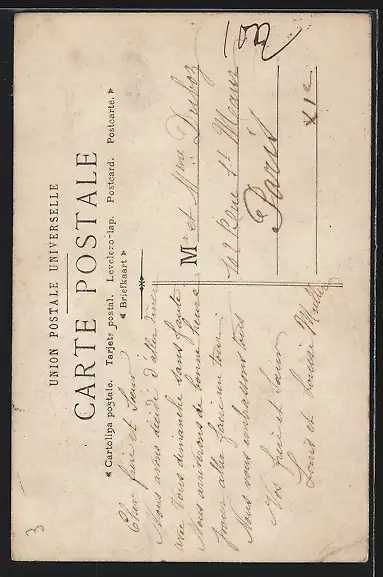 UNION POSTALE UNIVERSELLE
CARTE POSTALE
◄ Cartolina postale. Tarjeta postal. Levelezo-lap. Postcard. Postcarte. ►
◄ Briefkaart ►
Cher frère et Sœur
Nous avons décidé d'aller diner
avec Vous dimanche sans faute
Nous arriverons de bonne heure
pour aller faire un tour
Nous vous embrassons tous
Vos frère et sœur
Louis et Louise Muller
Mr et Mme Duboz
102 Rue St Maur
Paris
XIe
3